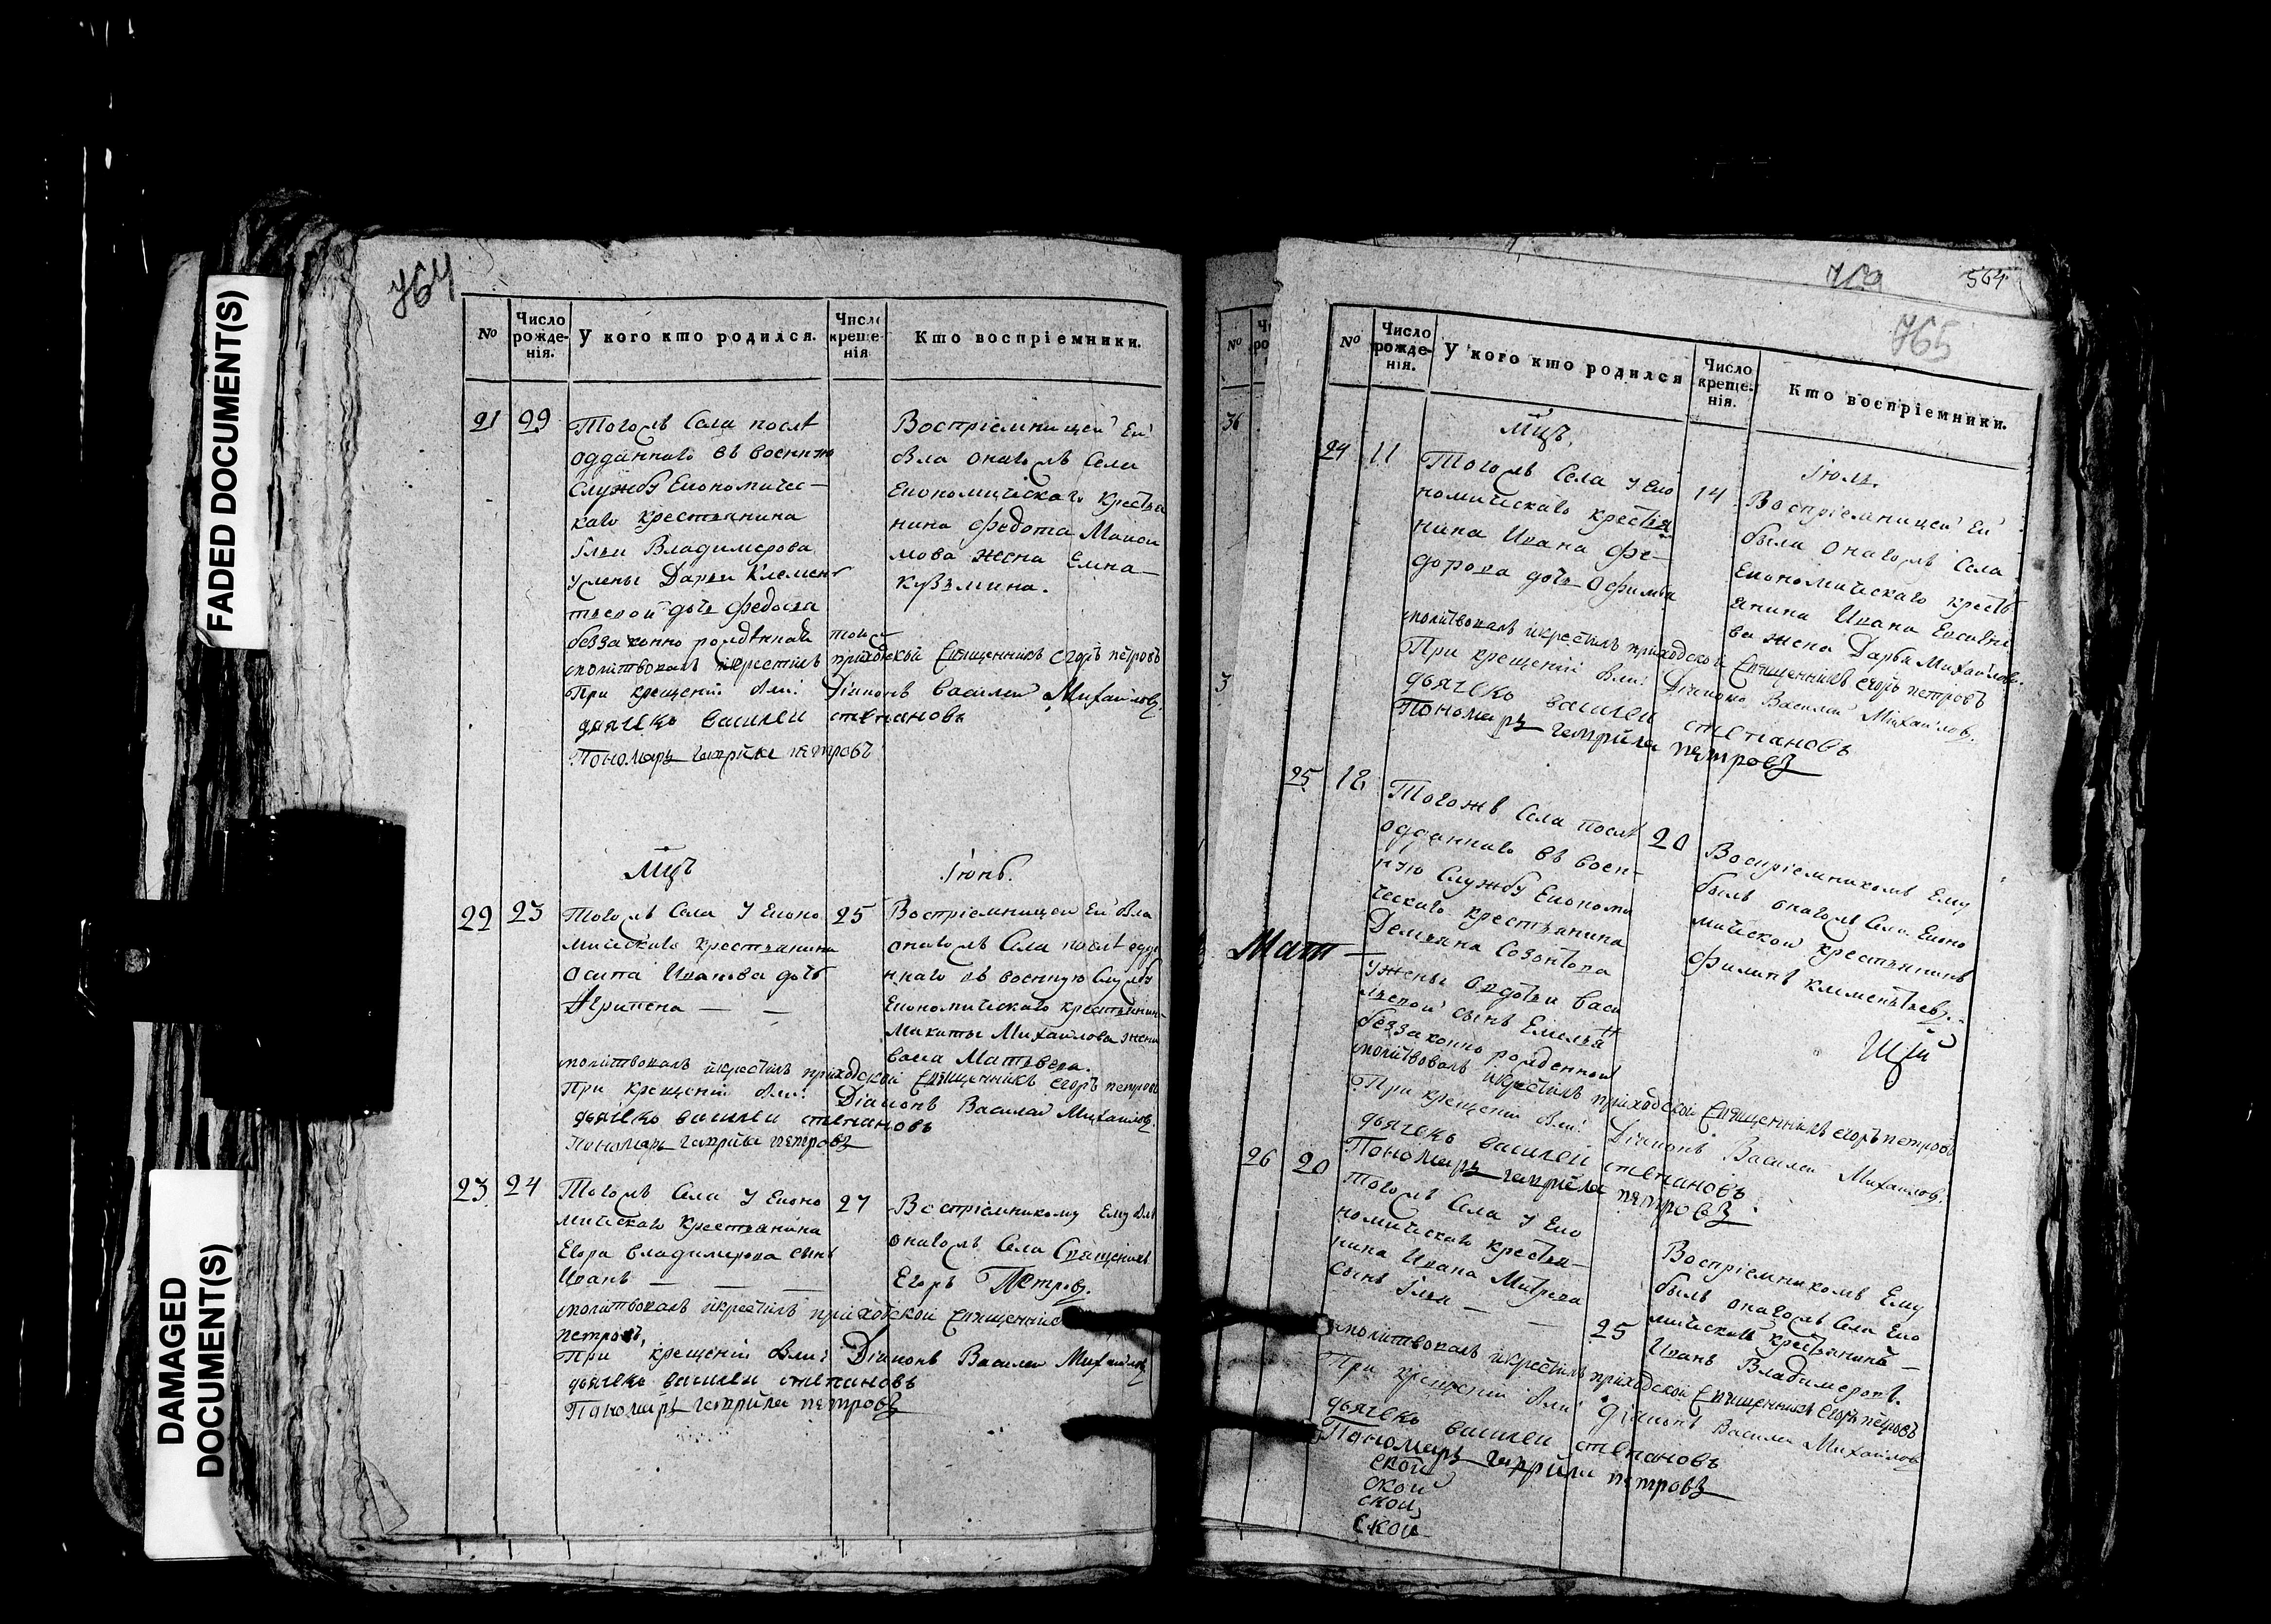 FADED DOCUMENT(S)
DAMAGED
DOCUMENT(S)
764
№
Число
рожде-
нія.
У кого кто родился.
Число
креще-
нія
Кто воспріемники.
21 29
Тогожъ Села послѣ
одданнаго въ военную
службу Економичес-
каго крестьянина
Ильи Владимерова
у жены Дарьи Клемен
тьевой дочь Федосья
беззаконно рожденная
Воспріемницей Ей
бла онагожъ Села
Економическаго крестья
нина Федота Макси
мова жена Елена
Кузьмина.
молитвовалъ икрестилъ приходской Священникъ Егоръ петровъ
При крещеніи бли: Діаконъ Василеи Михаиловъ.
дьячекъ василеи степановъ
Пономарь гаврила петровъ
Мцъ Іюнь.
22 23
Тогожъ Села У Еконо
мическаго крестьянина
Осипа Иванова дочь
Агрипена — —
25
Воспріемницеи Ей бла
онагожъ Села послѣ одда
ннаго въ военную службу
Економическаго крестьянина
Микиты Михаилова жена
Матвева.
молитвовалъ икрестилъ приходской Священникъ Егоръ петровъ
При крещеніи бли: Діаконъ Василеи Михаиловъ.
дьячекъ василеи степановъ
Пономарь гаврила петровъ
23 24
Тогожъ Села У Еконо
мическаго Крестьянина
Егора владимерова сынъ
Иванъ — — —
27
Воспріемникому Ему бл
онагожъ Села Священникъ
Егоръ Петровъ.
молитвовалъ икрестилъ приходской Священникъ
петровъ
При крещеніи бли: Діаконъ Василеи Михаиловъ
дьячекъ василеи степановъ
Пономарь гаврила петровъ
№
36
3
564
765
№
Число
рожде-
нія.
У кого кто родился
Число
креще-
нія.
Кто воспріемники.
Мцъ Іюль.
24 11
Тогожъ Села У Еко
номическаго крестья
нина Ивана Фе-
дорова дочь Офимья
14
Воспріемницей Ей
была онагожъ Села
Економическаго кресть
янина Ивана
ва жена Дарья Михайлова.
молитвовалъ икрестилъ приходской Священникъ Егоръ петровъ
При крещеніи бли: Діаконъ Василеи Михаиловъ.
дьячекъ василеи степановъ
Пономарь гаврила петровъ
25 18
Тогожъ Села послѣ
одданнаго въ воен-
ную Службу Економи
ческаго крестьянина
Демьяна Созонтова
у жены Овдотьи Васи
льевой сынъ Емельян
беззаконно рожденной
20
Воспріемникомъ Ему
былъ онагожъ Села Еконо
мической крестьянинъ
Филипъ клементьевъ.
Мат —
молитвовалъ икрестилъ приходской Священникъ Егоръ петровъ
При крещеніи бли: Діаконъ Василеи Михаиловъ.
дьячекъ василеи степановъ
Пономарь гаврила петровъ
26 20
Тогожъ Села У Еко
номическаго крестья-
нина Ивана Митрева
сынъ Илья — —
25
Воспріемникомъ Ему
былъ онагожъ Села Еко
мической крестьянинъ —
Иванъ Владимеровъ.
молитвовалъ икрестилъ приходской Священникъ Егоръ петровъ
При крещеніи бли: діаконъ Василеи Михаиловъ
дьячекъ василеи степановъ
Пономарь гаврила петровъ
ской
ской
ской
ской